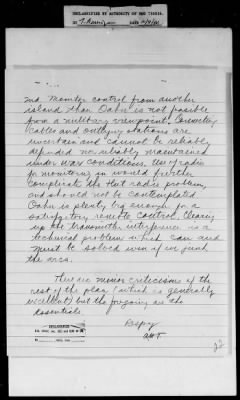 DECLASSIFIED BY AUTHORITY OF
and monitor control from another
island than Oahu is not possible
from a military viewpoint. Connecting
cables and outlying stations are
uncertain and cannot be reliably
depended nor reliably maintained
under war conditions. Use of radio
for monitoring in would further
complicate the Hat radio problem,
and should not be contemplated
Oahu is plenty big enough for a
satisfactory remote control. Clearing
up the transmitter interference is a
technical problem which can and
must be solved even if we junk
the arcs.
There are minor criticisms of the
rest of the plan (which is generally
excellent) but the foregoing are the
essentials.
Respy
DECLASSIFIED
22